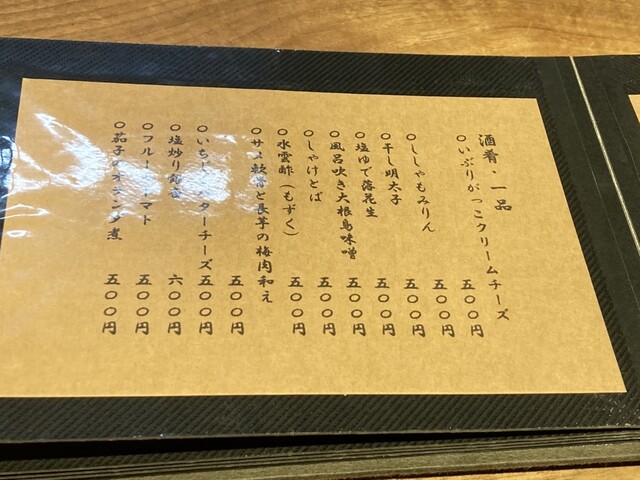 酒肴・一品
〇いぶりがっこクリームチーズ 五〇〇円
〇ししゃもみりん 五〇〇円
〇干し明太子 五〇〇円
〇塩ゆで落花生 五〇〇円
〇風呂吹き大根鳥味噌 五〇〇円
〇しゃけとば 五〇〇円
〇水雲酢（もずく） 五〇〇円
〇サメ軟骨と長芋の梅肉和え 五〇〇円
〇いちじくバターチーズ 五〇〇円
〇塩炒り銀杏 六〇〇円
〇フルーツトマト 五〇〇円
〇茄子のオランダ煮 五〇〇円